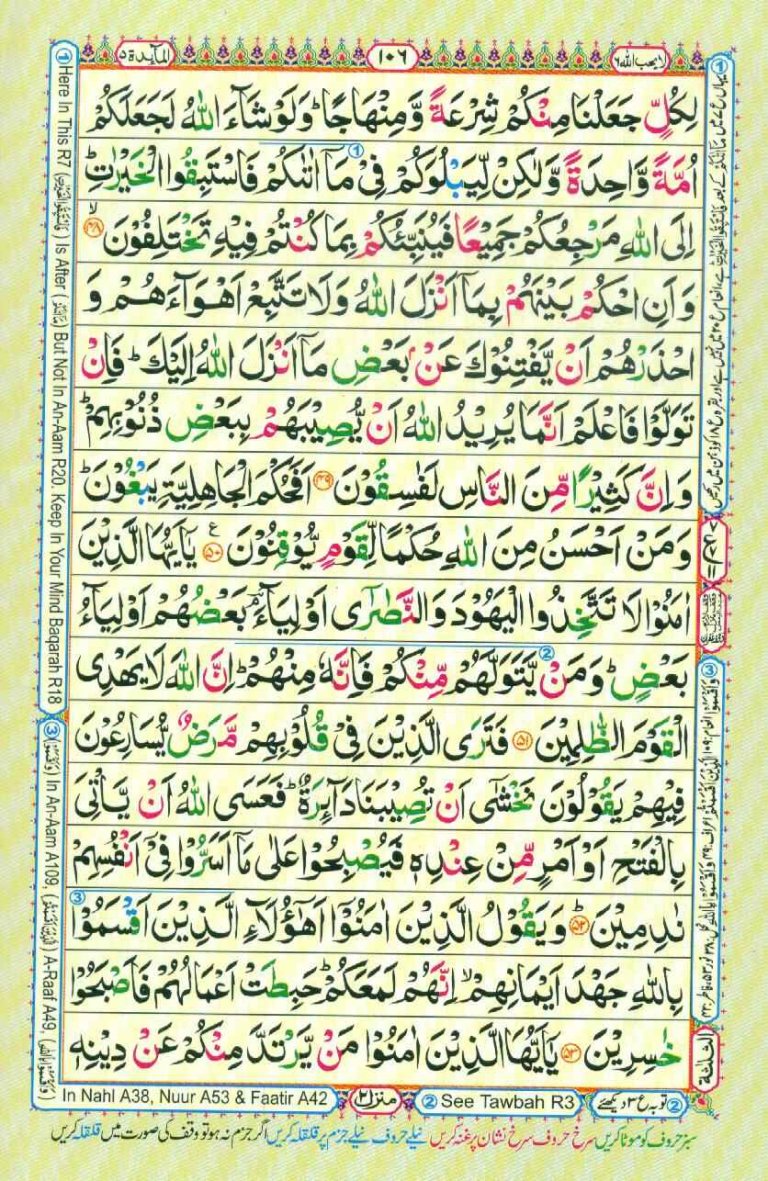 المآيدة ٥
١٠٦
لا يحب الله ٦
لِكُلٍّ جَعَلْنَا مِنْكُمْ شِرْعَةً وَّمِنْهَاجًا ؕ وَلَوْ شَآءَ اللّٰهُ لَجَعَلَكُمْ
اُمَّةً وَّاحِدَةً وَّلٰكِنْ لِّيَبْلُوَكُمْ فِىْ مَاۤ اٰتٰىكُمْ فَاسْتَبِقُوا الْخَيْرٰتِ ؕ
اِلَى اللّٰهِ مَرْجِعُكُمْ جَمِيْعًا فَيُنَبِّئُكُمْ بِمَا كُنْتُمْ فِيْهِ تَخْتَلِفُوْنَ ۙ‏﴿۴۸﴾
وَاَنِ احْكُمْ بَيْنَهُمْ بِمَاۤ اَنْزَلَ اللّٰهُ وَلَا تَتَّبِعْ اَهْوَآءَهُمْ وَ
احْذَرْهُمْ اَنْ يَّفْتِنُوْكَ عَنْۢ بَعْضِ مَاۤ اَنْزَلَ اللّٰهُ اِلَيْكَ ؕ فَاِنْ
تَوَلَّوْا فَاعْلَمْ اَنَّمَا يُرِيْدُ اللّٰهُ اَنْ يُّصِيْبَهُمْ بِبَعْضِ ذُنُوْبِهِمْ ؕ
وَاِنَّ كَثِيْرًا مِّنَ النَّاسِ لَفٰسِقُوْنَ ﴿۴۹﴾ اَفَحُكْمَ الْجَاهِلِيَّةِ يَبْغُوْنَ ؕ
وَمَنْ اَحْسَنُ مِنَ اللّٰهِ حُكْمًا لِّقَوْمٍ يُّوْقِنُوْنَ ﴿۵۰﴾ ع يٰۤاَيُّهَا الَّذِيْنَ
اٰمَنُوْا لَا تَتَّخِذُوا الْيَهُوْدَ وَالنَّصٰرٰۤى اَوْلِيَآءَ ۘؔ بَعْضُهُمْ اَوْلِيَآءُ
بَعْضٍ ؕ وَمَنْ يَّتَوَلَّهُمْ مِّنْكُمْ فَاِنَّهٗ مِنْهُمْ ؕ اِنَّ اللّٰهَ لَا يَهْدِى
الْقَوْمَ الظّٰلِمِيْنَ ﴿۵۱﴾ فَتَرَى الَّذِيْنَ فِىْ قُلُوْبِهِمْ مَّرَضٌ يُّسَارِعُوْنَ
فِيْهِمْ يَقُوْلُوْنَ نَخْشٰٓى اَنْ تُصِيْبَنَا دَآئِرَةٌ ؕ فَعَسَى اللّٰهُ اَنْ يَّاْتِىَ
بِالْفَتْحِ اَوْ اَمْرٍ مِّنْ عِنْدِهٖ فَيُصْبِحُوْا عَلٰى مَاۤ اَسَرُّوْا فِىْۤ اَنْفُسِهِمْ
نٰدِمِيْنَ ؕ‏﴿۵۲﴾ وَيَقُوْلُ الَّذِيْنَ اٰمَنُوْۤا اَهٰٓؤُلَآءِ الَّذِيْنَ اَقْسَمُوْا
بِاللّٰهِ جَهْدَ اَيْمَانِهِمْ ۙ اِنَّهُمْ لَمَعَكُمْ ؕ حَبِطَتْ اَعْمَالُهُمْ فَاَصْبَحُوْا
خٰسِرِيْنَ ﴿۵۳﴾ يٰۤاَيُّهَا الَّذِيْنَ اٰمَنُوْا مَنْ يَّرْتَدَّ مِنْكُمْ عَنْ دِيْنِهٖ
① Here In This R7 (فَاسْتَبِقُوا الْخَيْرٰتِ) Is After () But Not In An-Aam R20. Keep In Your Mind Baqarah R18
③ (وَاَقْسَمُوْا) In An-Aam A109, () A-Raaf A49, (وَاَقْسَمُوْا بِاللّٰهِ)
In Nahl A38, Nuur A53 & Faatir A42
منزل ٢
② See Tawbah R3
② توبہ ع ٣ دیکھئے
الثلثة
سبز حروف کو موٹا کریں سرخ حروف سرخ نشان پر غنہ کریں نیلے حروف نیلے جزم پر قلقلہ کریں اگر جزم نہ ہو تو وقف کی صورت میں قلقلہ کریں